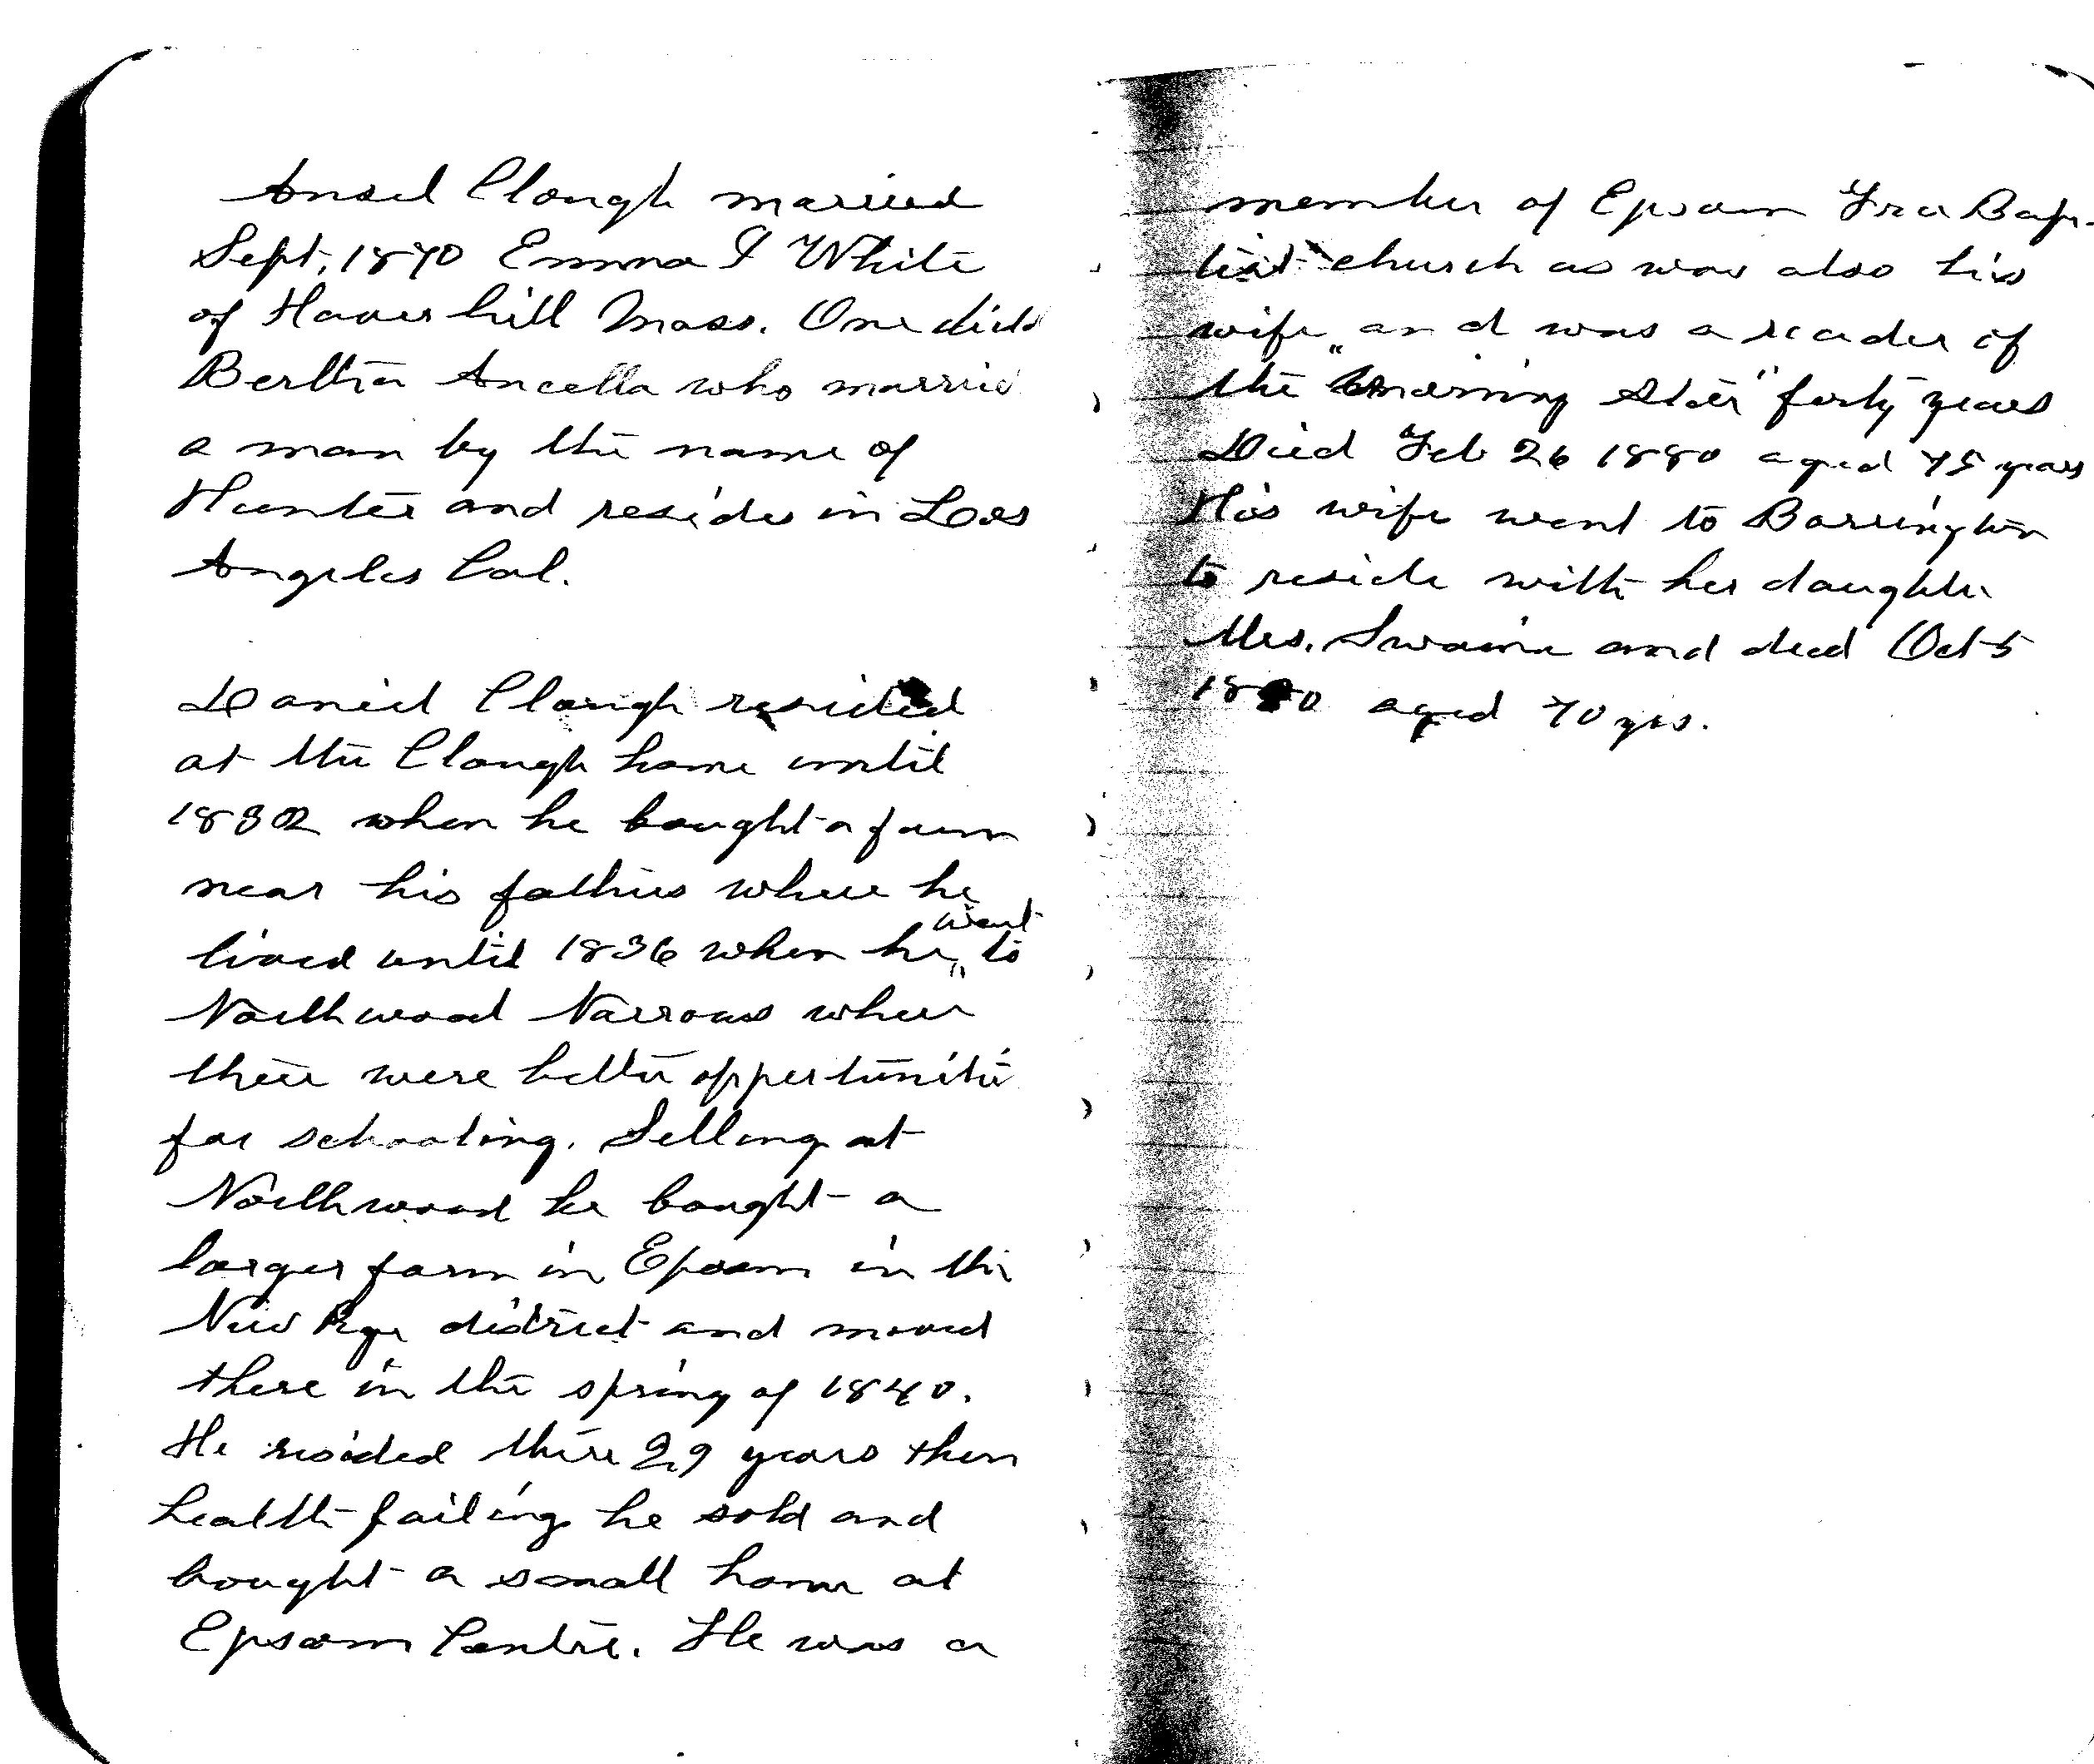 Ansel Clough married
Sept. 1870 Emma I White
of Haverhill Mass. One child
Bertha Ancella who married
a man by the name of
Hunter and resides in Los
Angeles Cal.
Daniel Clough resided
at the Clough home until
1832 when he bought a farm
near his fathers where he
lived until 1836 when he went to
Northwood Narrows where
there were better oppertunitie
for schooling. Selling at
Northwood he bought a
larger farm in Epsom in the
New Rye district and moved
there in the spring of 1840.
He resided there 29 years then
health failing he sold and
bought a small home at
Epsom Centre. He was a
member of Epsom Free Bap-
tist church as was also his
wife and was a reader of
the "Morning Star" forty years
Died Feb 26 1880 aged 75 years
His wife went to Barrington
to reside with her daughter
Mrs. Swaine and died Oct 5
aged 70 yrs.